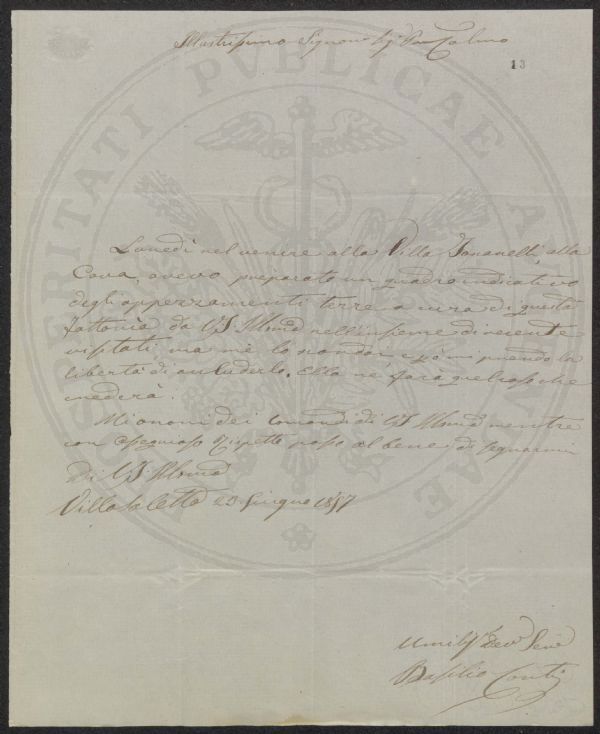 Illustrissimo Signore
13
Lunedì nel venire alla Villa alla
Cava, avevo preparato un quadro indicativo
degli appezzamenti terre a cura di questa
fattoria da VS Illma nell'insieme di recente
visitati, ma me lo scordai e più mi prendo la
libertà di accluderlo. Ella ne farà quel caso che
crederà.
Mi onori dei comandi di VS Illma mentre
con ossequioso rispetto passo al bene di segnarmi
Di VS Illma
Villa Saletta 23 Giugno 1857
Umilo Devo Serve
Basilio Conti
PROSPERITATI PVBLICAE